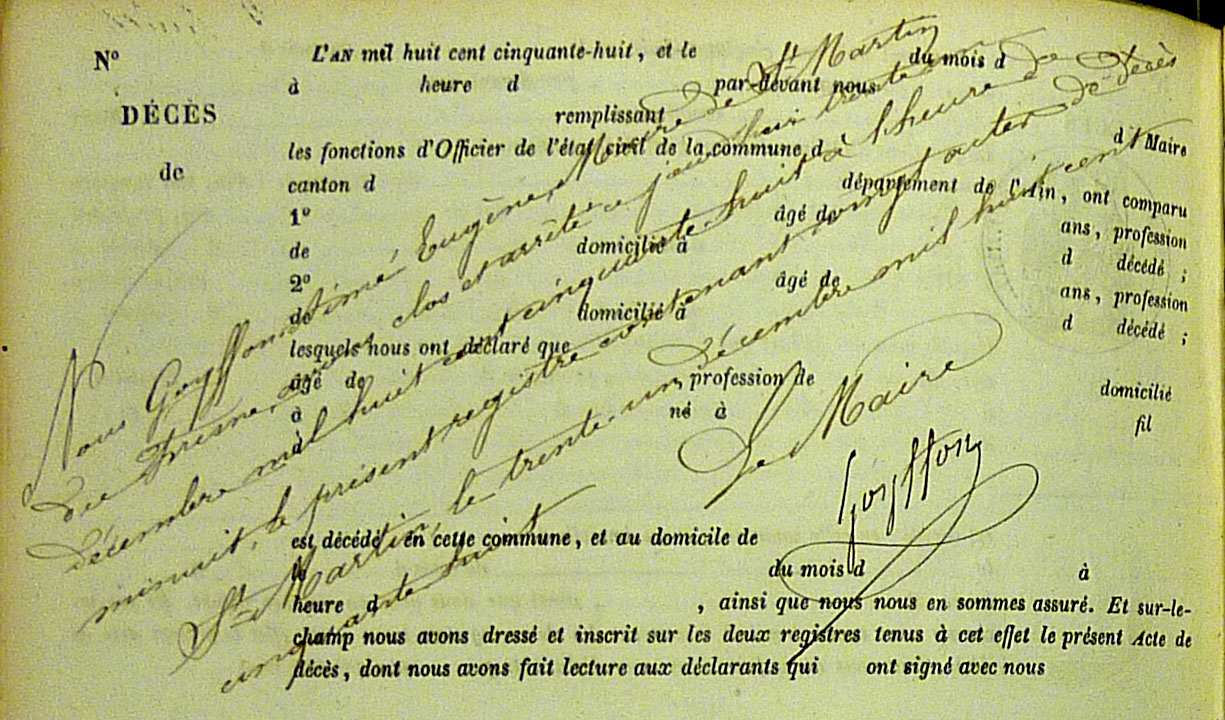 N°
DÉCÈS
de
L'AN mil huit cent cinquante-huit, et le du mois d
à heure d par-devant nous
remplissant
les fonctions d'Officier de l'état civil de la commune d d' Maire
canton d département de l'Ain, ont comparu
1° âgé de ans, profession
de domicilié à d décédé ;
2° âgé de ans, profession
de domicilié à d décédé ;
lesquels nous ont déclaré que
âgé de profession de domicilié
à né à fil
est décédé en cette commune, et au domicile de
le du mois d à
heure d , ainsi que nous nous en sommes assuré. Et sur-le-
champ nous avons dressé et inscrit sur les deux registres tenus à cet effet le présent Acte de
décès, dont nous avons fait lecture aux déclarants qui ont signé avec nous
Nous Goyffon Aimé Eugène, Maire de St Martin
du Fresne, avons clos et arrêté aujourd'hui trente un
décembre mil huit cent cinquante huit à l'heure de
minuit, le présent registre contenant vingt actes de décès
St Martin, le trente un décembre mil huit cent
cinquante huit
Le Maire
Goyffon